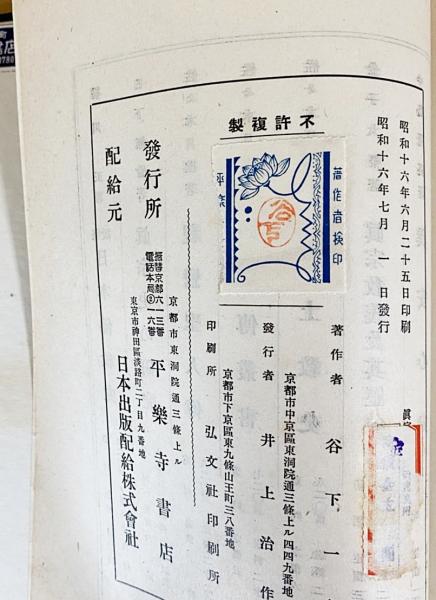 昭和十六年六月二十五日印刷
昭和十六年七月一日發行
不許複製
著作者檢印
著作者 谷下一
京都市中京區東洞院通三條上ル四四九番地
發行者 井上治作
京都市下京區東九條山王町三八番地
印刷所 弘文社印刷所
京都市東洞院通三條上ル
發行所 平樂寺書店
振替京都六一三番
電話本局②一六番
東京市神田區淡路町二丁目九番地
配給元 日本出版配給株式會社